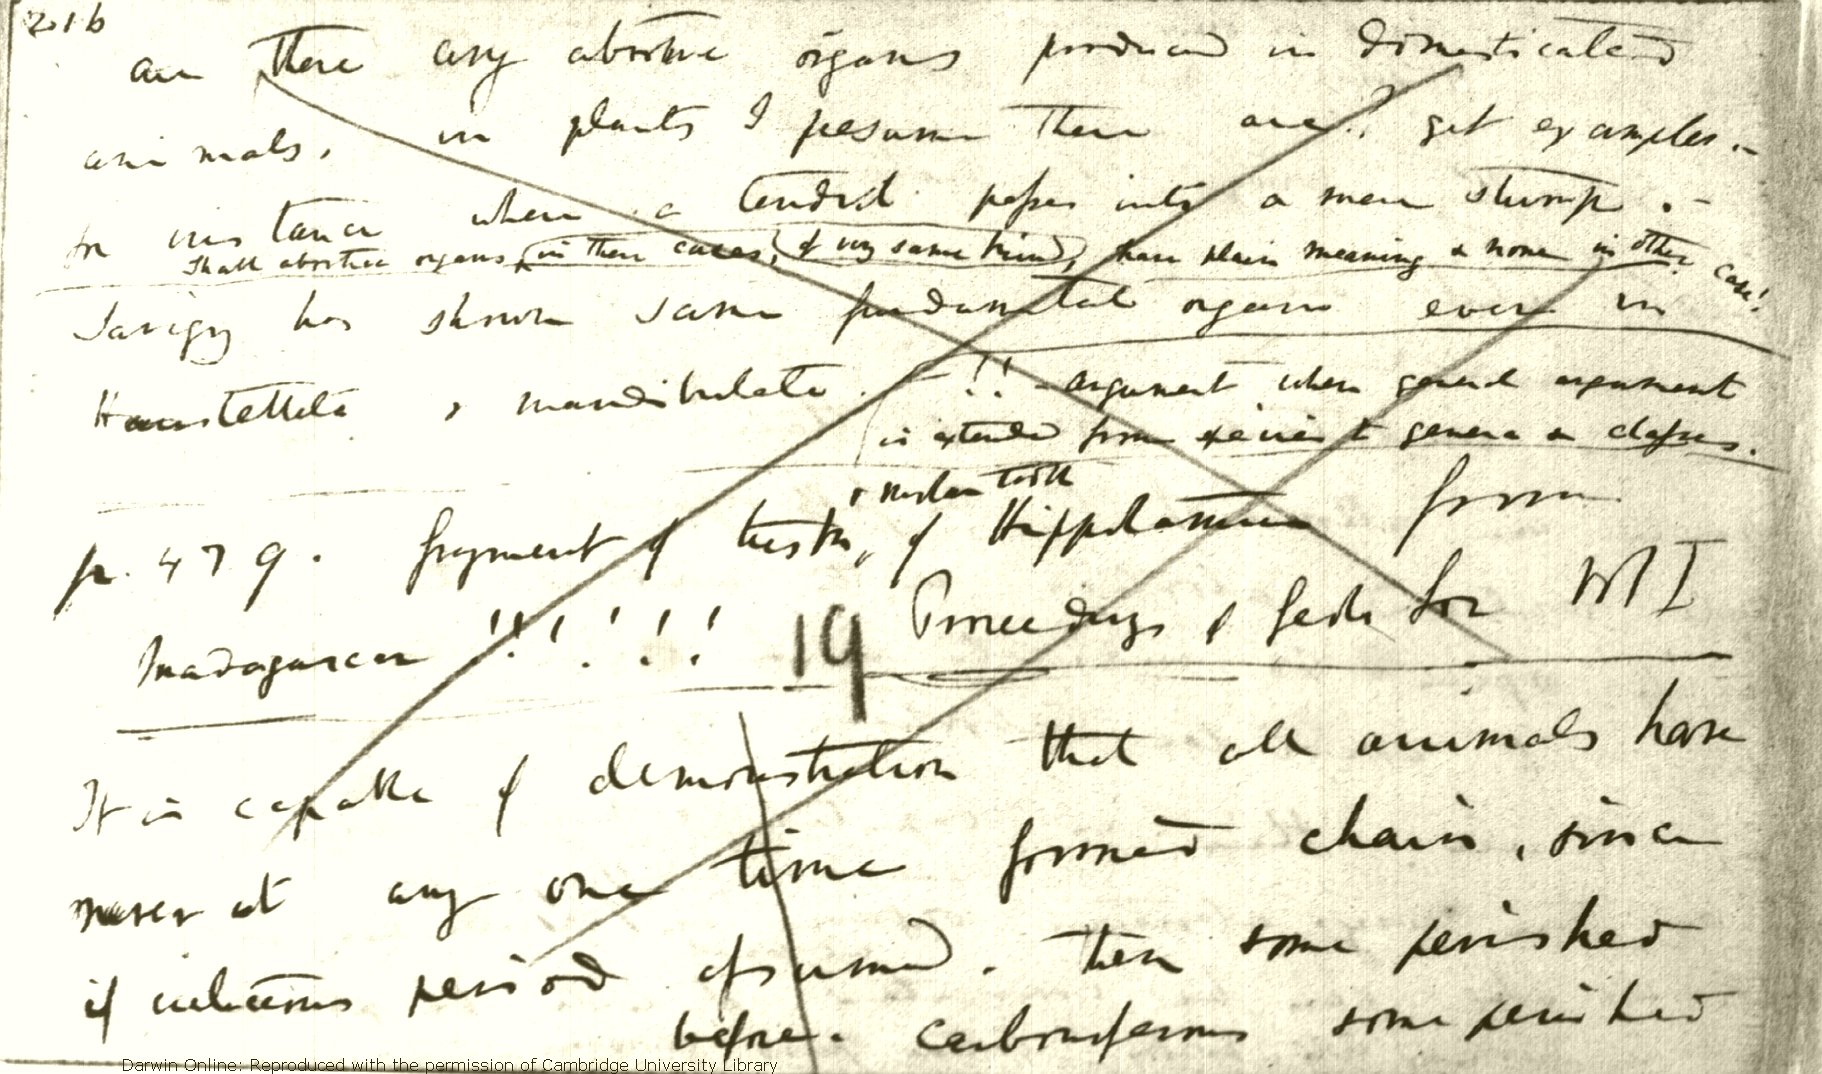 201b
are there any abortive organs produced in domesticated
animals, in plants I presume there are? get examples.—
for instance where a tendril passes into a mere stump.—
Shall abortive organs, (in these cases), (of very same kind), have plain meaning & none in other case!
Savigny has shown same fundamental organs even in
Haustellata & mandibulata. !! — argument when general argument
is extended from species to genera & classes.
& molar tooth
p. 479. fragment of tusk, of Hippopotamus from
Madagascar !!!!!! Proceedings of Geolo Soc Vol I
19
It is capable of demonstration that all animals have
never at any one time formed chain, since
if cretaceous period assumed. then some perished
before. carboniferous some perished
Darwin Online: Reproduced with the permission of Cambridge University Library